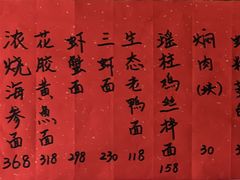 浓烧海参面 368
花胶黄鱼面 318
虾蟹面 298
三虾面 230
生态老鸭面 118
瑶柱鸡丝拌面 158
焖肉(块) 30